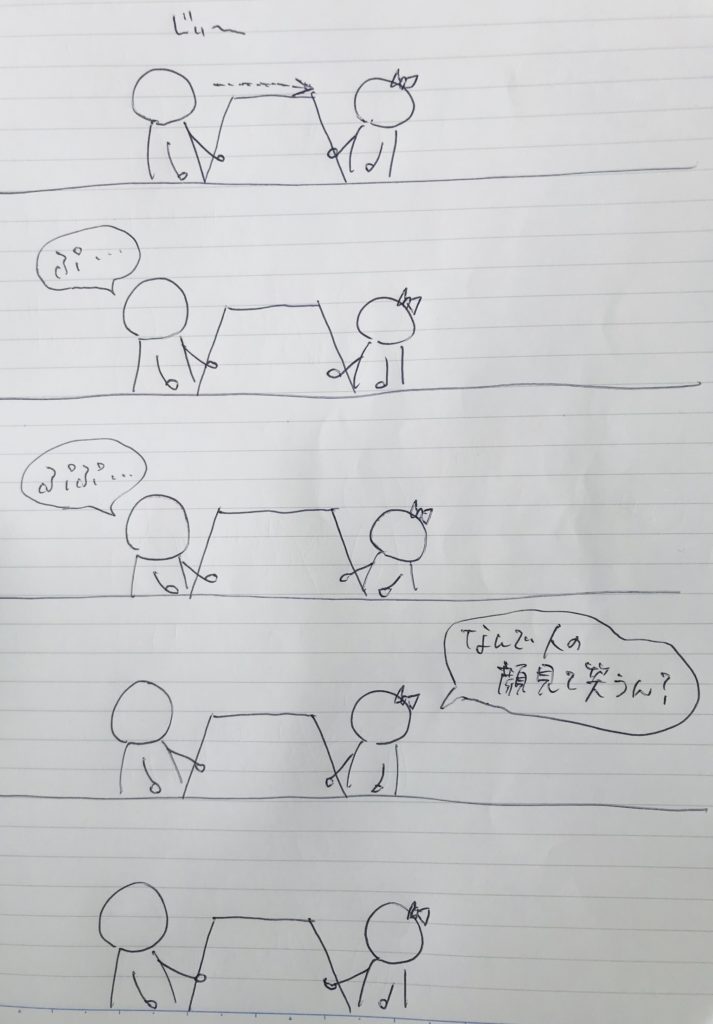 じぃ〜
ぷ…
ぷぷ…
なんで人の
顔見て笑うん？